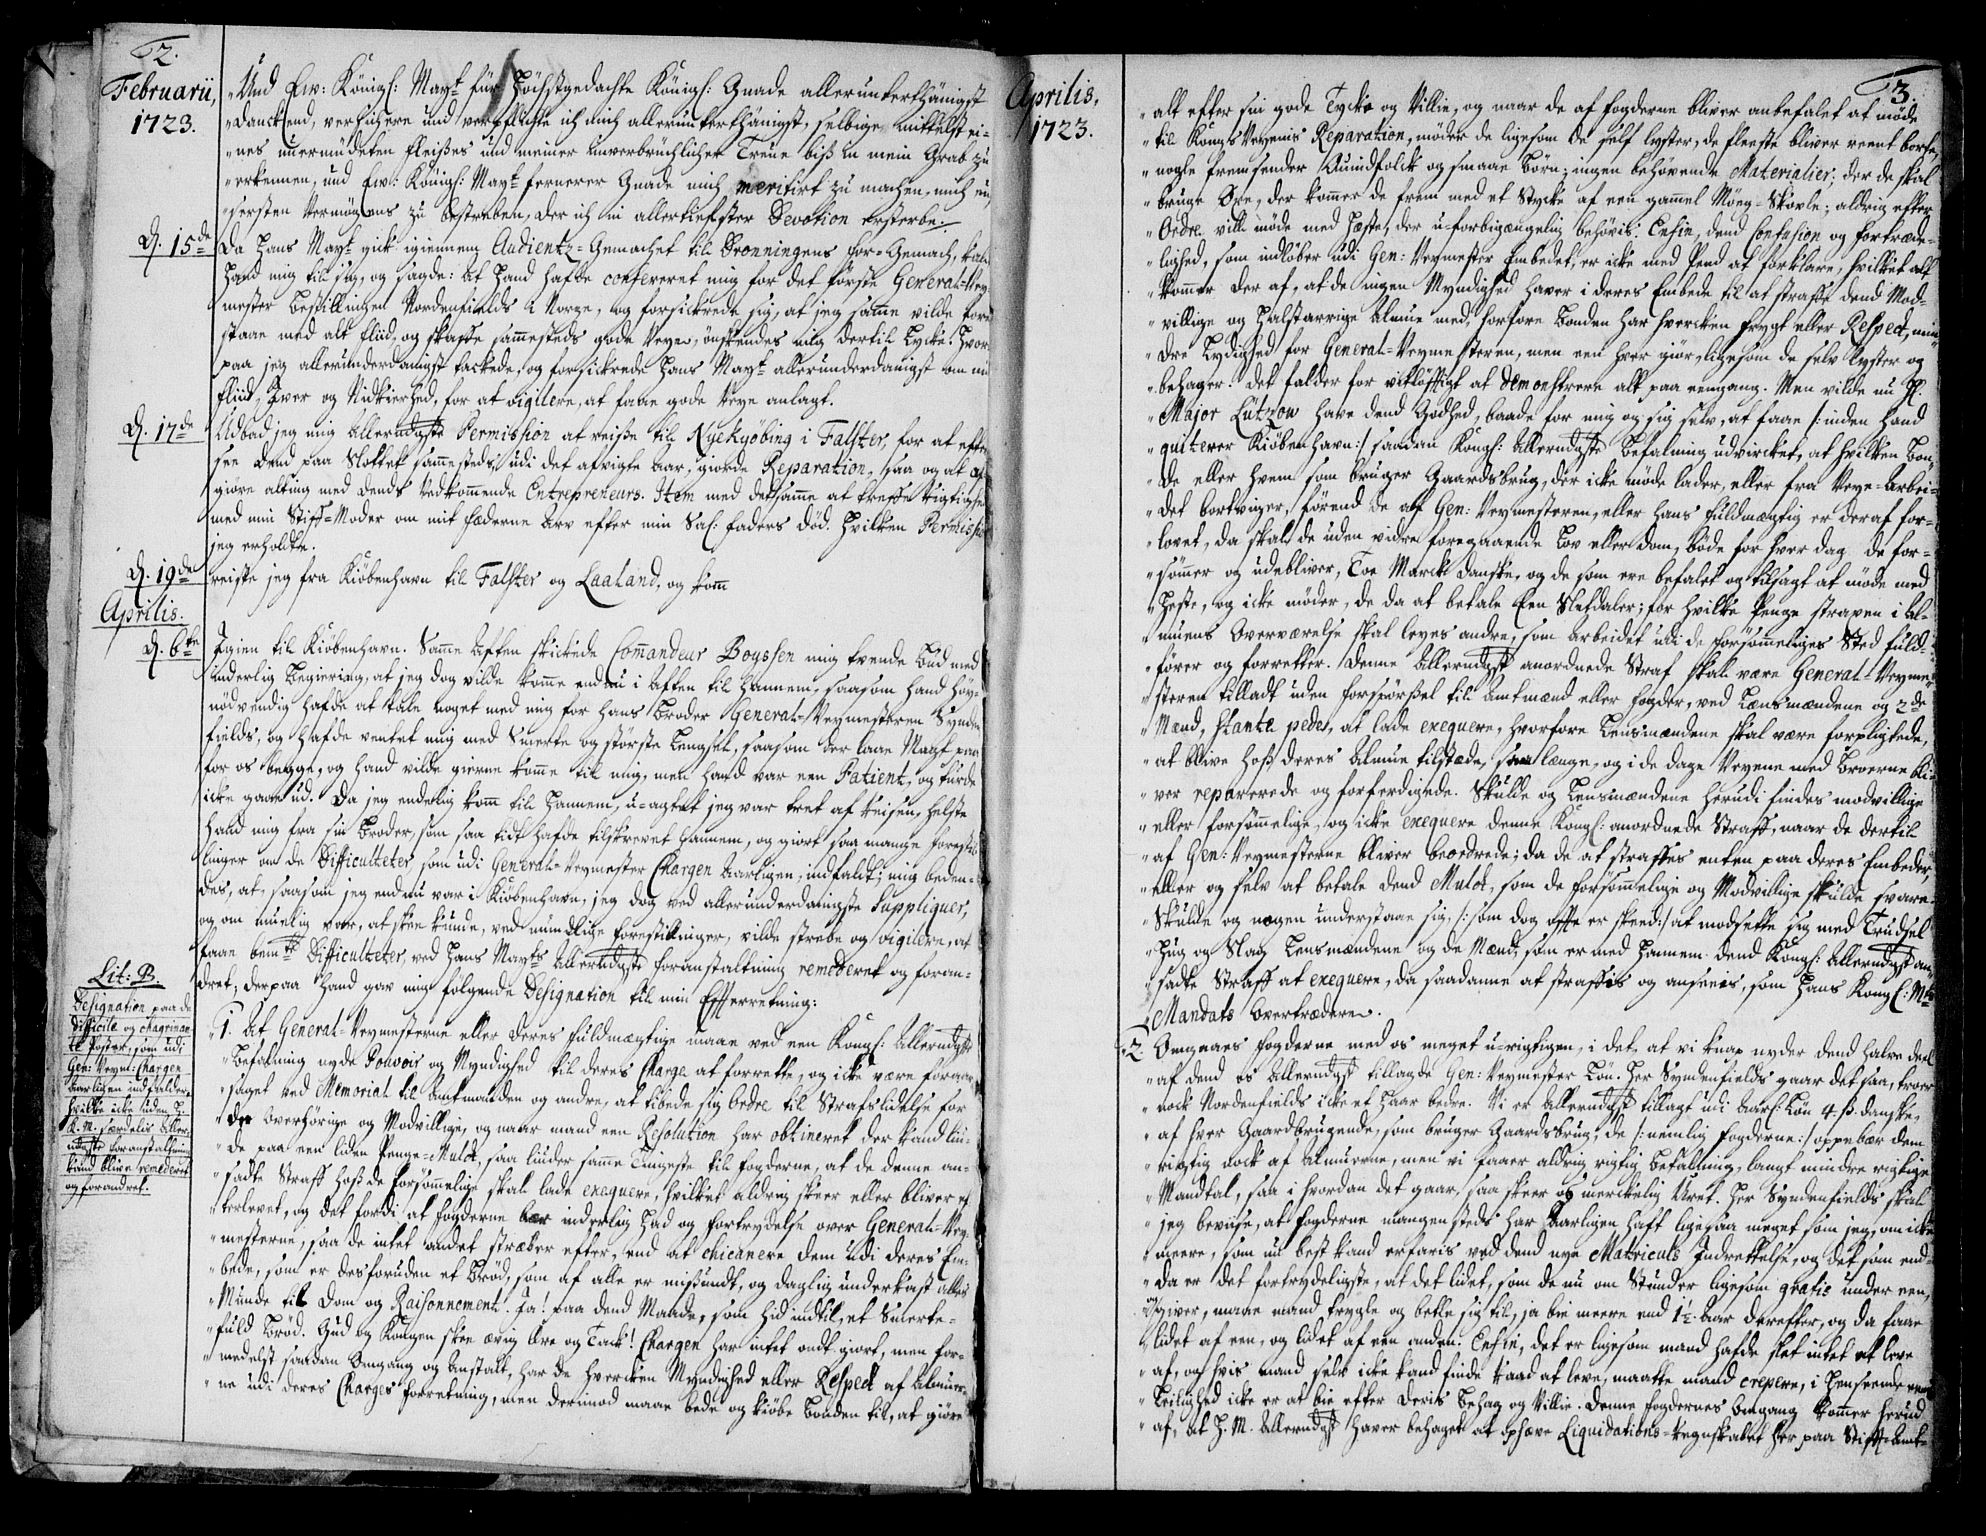 2.
Februarii,
1723.
"Und Ew: Königl: Mayt für Höchstgedachte Königl: Gnade allerunterthänigst
"Danckend, versichere und verpflichte ich mich allerunterthänigst, selbige mittelst ei-
"nes unermüdeten Fleißes und meiner unverbrüchlicher Treue biß in mein Grab zu
"erkennen, und Ew: Königl: Mayt fernerer Gnade mich meritirt zu machen, mich eu-
"sersten Vermögens zu bestreben, der ich in allertiefster Devotion ersterbe.
d. 15de
Da Hans Mayt gick igiennem Audientz-Gemachet til Dronningens For-Gemach, kald
Hand mig til sig, og sagde: at Hand hafde confereret mig for det første General-Vey-
mester Bestillingen Nordenfields i Norge, og forsickrede sig, at jeg samme vilde fore
staae med alt Fliid, og skaffe sammesteds gode Veye, ønskendes mig dertil Lycke. Hvor
paa jeg allerunderdanigst tackede, og forsickrede Hans Mayt allerunderdanigst om min
Fliid, Iver og Nidkierhed, for at vigilere, at faae gode Veye anlagt.
d. 17de
Udbad jeg mig Allernaadigste Permission at reise til Nyekyøbing i Falster, for at efter
see dend paa Slottet sammesteds, udi det afvigte Aar, giorde Reparation, saa og at af
giøre alting med dends Vedkommende Entrepreneurs. Item med det samme at træffe Rigtighed
med min Stif-Moder om mit Fæderne Arv efter min Sal: Faders død. Hvilken Permission
jeg erholdte.
d. 19de
reiste jeg fra Kiøbenhavn til Falster og Laaland, og kom
Aprilis.
d. 6te
Igien til Kiøbenhavn. Samme Aften skickede Commandeur Boyssen mig tvende Bud med
inderlig Begiering, at jeg dog vilde komme endnu i Aften til Hannem, saasom Hand høy-
nødvendig hafde at tale noget med mig for hans Broder General-Veymesteren Synden
fields, og hafde ventet mig med Smerte og største Lengsel, saasom der laae Magt paa
for os begge, og hand vilde gierne komme til mig, men hand var een Patient, og turde
icke gaae ud. Da jeg endelig kom til Hannem, u-agtet jeg var træt af Reisen, helste
Hand mig fra sin Broder, som saa tidt hafde tilskrevet Hannem, og giort saa mange Forestil
linger om de Difficulteter som udi General-Veymester Chargen aarligen indfaldt; mig beden-
des, at, saasom jeg endnu var i Kiøbenhavn, jeg dog ved allerunderdanigste Suppliquer,
og om mueligt vaar, at skee kunde, ved mundtlige Forestillinger, vilde stræbe og vigilere, at
faae bemte Difficulteter, ved Hans Mayts Allernaadigste Foranstaltning remederet og foran-
dret, derpaa Hand gav mig følgende Designation til min Efterretning:
Lit: B.
Designation paa de
difficile og chagrinan-
te Poster, som udi
Gen: Veym: Chargen
aarligen indfalder,
hvilke icke uden H:
K. M. særdelis Aller-
naadigste Foranstaltning
kand blive remederet
og forandret.
"1. At General-Veymesterne eller deres Fuldmægtige maae ved een Kongl: Allernaadigste
"Befalning nyde Pouvoir og Myndighed til deres Charge at forrette, og icke være foraar
"saget ved Memorial til Amtmanden og andre, at tibede sig bedre til Strafslidelse for
"de Overhørige og Modvillige, og naar mand een Resolution har obtineret der kand liu-
"de paa een liden Penge-Mulct, saa liuder samme Tingeste til Fogderne, at de denne an-
"sadte Straff hoß de Forsømmelige skal lade exequere, hvilket aldrig skeer eller bliver ef
"terlevet, og det fordi at Fogderne bær inderlig Had og Fortrydelse over General-Vey-
"mesterne, saa de intet andet stræber efter, end at chicanere dem udi deres Em-
"bede, som er desforuden et Brød, som af alle er misundt, og daglig underkast alles
"Munde til Dom og Raisonnement. Ja! paa dend Maade, som hid indtil, et Smerte-
"fuld Brød. Gud og Kongen skee ævig Ære og Tack! Chargen har intet ondt giort, men for-
"medelst saadan Omgang og Anstalt, har de hvercken Myndighed eller Respect af Almuer-
"ne udi deres Charges Forretning, men derimod maae bede og kiøbe Bonden til, at giøre
Aprilis,
1723.
3.
"alt efter sin gode Tycke og Villie, og naar de af Fogderne bliver anbefalet at møde
"til Kongs Veyenes Reparation, møder de ligesom de self lyster, de fleeste bliver reent borte,
"nogle fremsender Quindfolck og smaae Børn; ingen behøvende Materialier; der de skal
"bruge Øxe, der kommer de frem med et Stycke af een gammel Møeg-Skovle; aldrig efter
"Ordre vill møde med Heste, der u-forbigængelig behøvis. Enfin, dend Confusion og Fortræde-
"lighed, som indløber udi Gen: Veymester Embedet, er icke med Pend at forklare, hvilket alt
"kommer der af, at de ingen Myndighed haver i deres Embede til at straffe dend Mod-
"villige og Halstarrige Almue med, hvorfore Bonden har hvercken Frygt eller Respect, min-
"dre Lydighed for General-Veymesteren, men een hver giør, ligesom de selv lyster og
"behager. Det falder for vitløftigt at demonstrere alt paa eengang. Men vilde nu Hr.
"Major Lützow have dend Godhed, baade for mig og sig selv, at faae /: inden Hand
"quiterer Kiøbenhavn :/ saadan Kongl: Allernaadigste Befalning udvircket, at hvilken Bon-
"de eller hvem som bruger Gaardsbrug, der icke møde lader, eller fra Veye-Arbei-
"det bortviiger, førend de af Gen: Veymesteren, eller hans Fuldmægtig er deraf for-
"lovet, da skal de uden vidre foregaaende Lov eller Dom, bøde for hver dag de for-
"sømmer og udebliver, Toe Marck danske, og de som ere befalet og tilsagt at møde med
"Heste, og icke møder, de da at betale Een Sletdaler; for hvilke Penge straxen i Al-
"muens Overværelse skal leyes andre, som Arbeidet udi de forsømmeliges Sted fuld-
"fører og forretter. Denne Allernaadigst anordnede Straf skal være General-Veyme-
"steren tilladt uden Forspørsel til Amtmænd eller Fogder, ved Lænsmændene og 2de
"Mænd, stante pede, at lade exequere, hvorfore Lensmændene skal være forpligtede,
"at blive hoß deres Almue tilstæde, saa længe, og i de dage Veyene med Broerne bli-
"ver reparerede og forferdigede. Skulde og Lensmændene herudi findes modvillige
"eller forsømmelige, og icke exequere denne Kongl: anordnede Straff, naar de dertil
"af Gen: Veymesterne bliver beordrede; da de at straffes enten paa deres Embeder,
"eller og selv at betale dend Mulct, som de Forsømmelige og Modvillige skulde svare.
"Skulde og nogen understaae sig, /: som dog ofte er skeed :/ at modsette sig med Trudsel
"Hug og Slag Lensmændene og de Mænd, som er med Hannem dend Kongl: Allernaadigst an-
"satte Straff at exequere, da saadanne at straffes og ansees, som Hans Kongl: Mts
"Mandats Overtrædere.
"2. Omgaaes Fogderne med os meget u-rigtigen, i det, at vi knap nyder dend halve deel
"af dend os Allernaadigst tillagde Gen: Veymester Løn. Her Syndenfields gaar det saa, troer
"nock Nordenfields icke et Haar bedre. Vi er Allernaadigst tillagt udi Aarl: Løn 4 ß. danske,
"af hver Gaardbrugende, som bruger Gaardsbrug, de /: nemlig Fogderne :/ oppebær dem
"rigtig nock af Almuerne, men vi faaer aldrig rigtig Betalning, langt mindre rigtige
"Mandtal, saa i hvordan det gaar, saa skeer os merckelig Uret. Her Syndenfields skal
"jeg beviise, at Fogderne mangen steds har Aarligen haft ligesaa meget som jeg, om icke
"meere, som nu best kand erfaris ved dend nye Matriculs Indrettelse, og det som end-
"da er det fortrydeligste, at det lidet, som de nu om Stunder ligesom gratis under een,
"og giver, maae mand trygle og betle sig til, ja bie meere end 1½ Aar derefter, og da faae
"lidet af een, og lidet af een anden. Enfin, det er ligesom mand hafde slet intet at leve
"af, og hvis mand selv icke kand finde Raad at leve, maatte mand crepere, i Henseende een
"Leilighed icke er at bie efter deris Behag og Villie. Denne Fogdernes Omgang kommer herud
"af, at H. M. Allernaadigst haver behaget at ophæve Liquidations-Regnskabet her paa Stift-Amt-